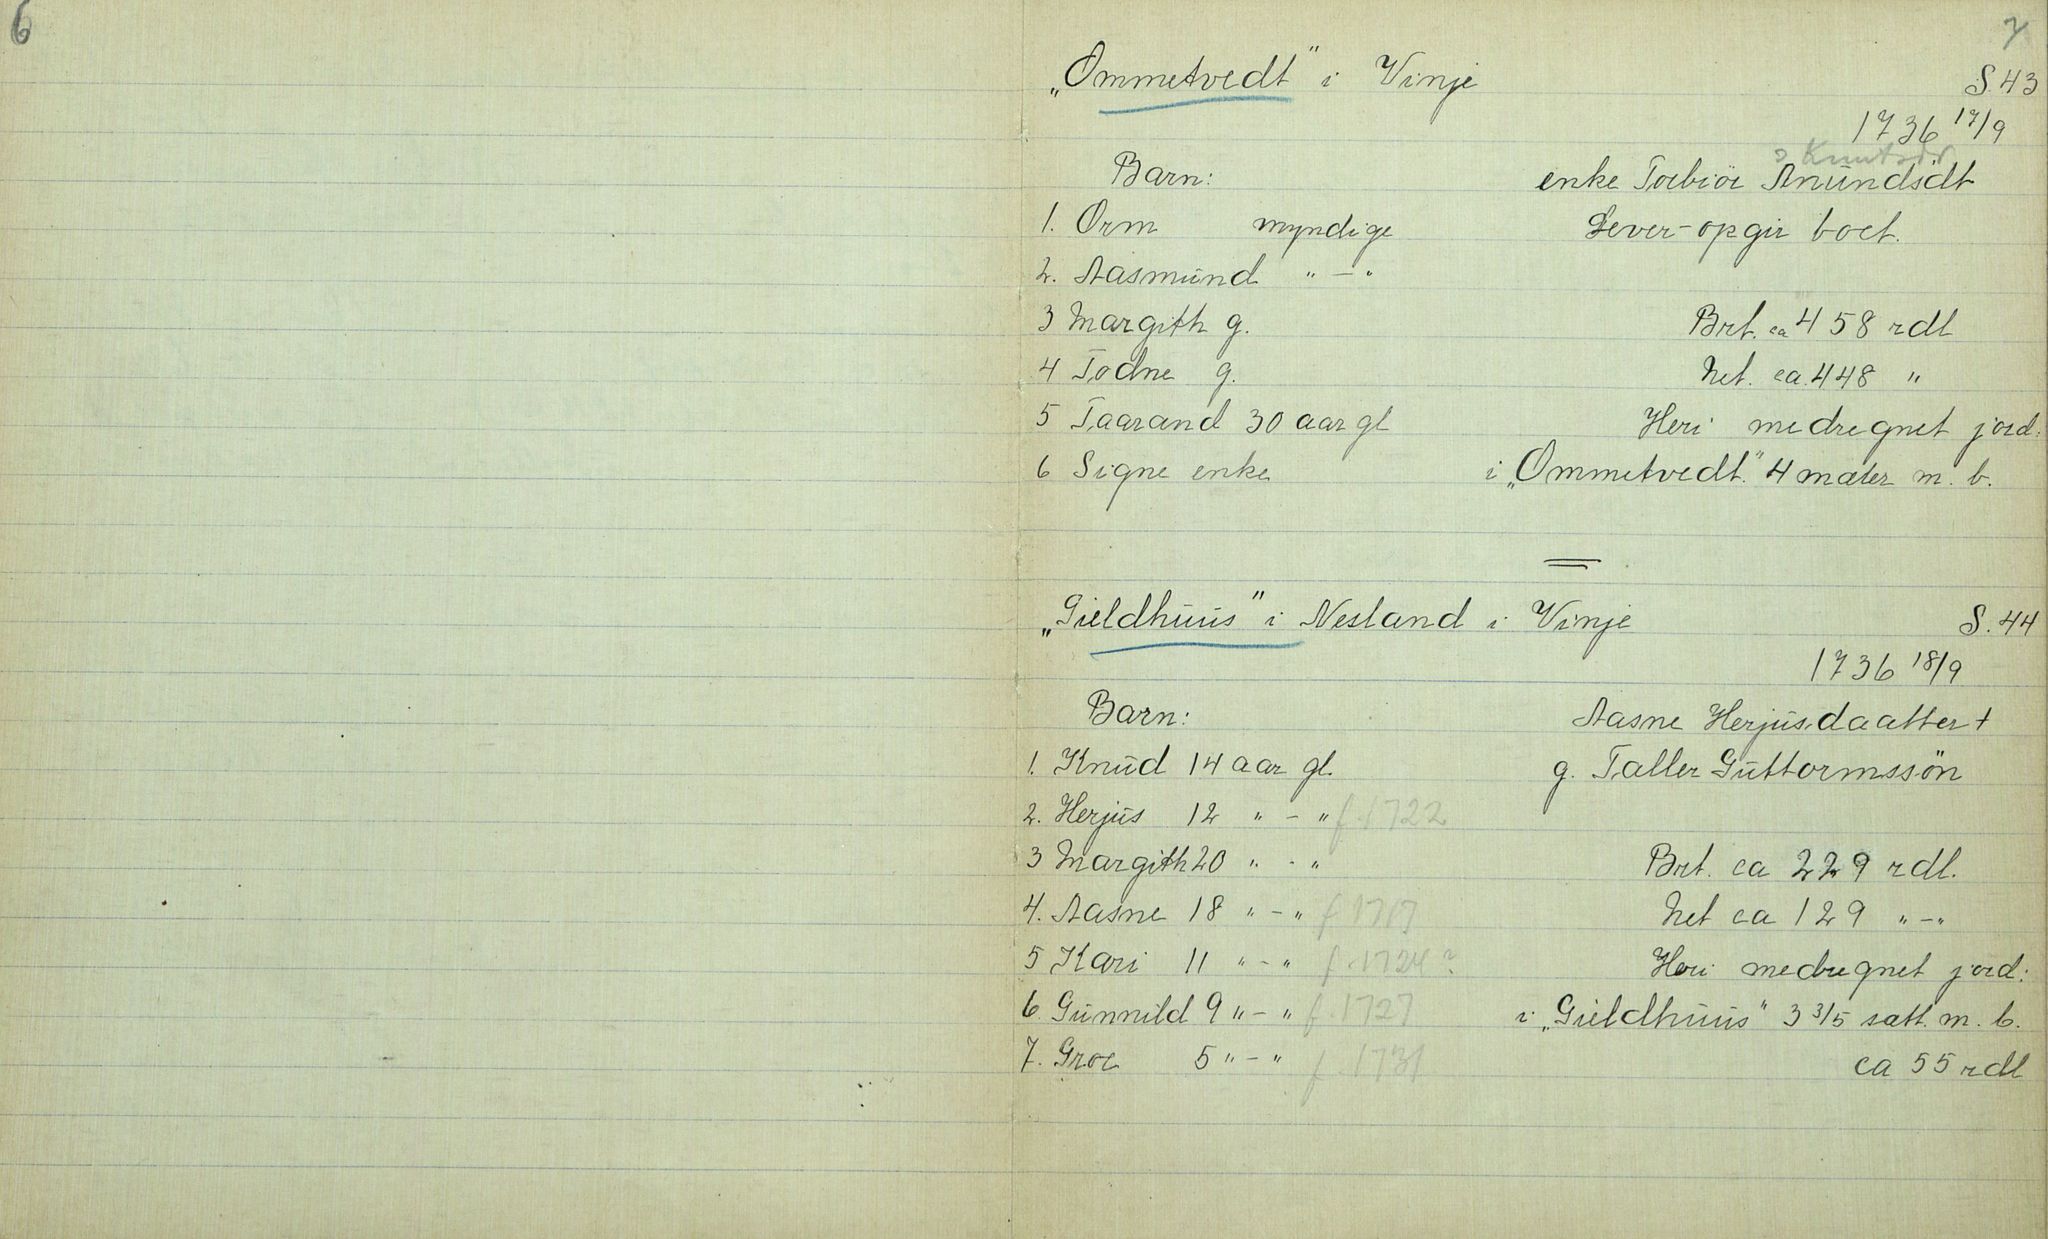 6
7
„Ommetvedt" i Vinje
S. 43
1736 17/9
Knutsdr
Barn:
enke Torbiör Anundsdt
1. Orm myndige
Lever-opgir boet.
2. Aasmund " - "
3 Margith g.
Brt. ca 458 rdl
4 Todne g.
Net. ca. 448 "
5 Taarand 30 aar gl
Heri medregnet jord:
6 Signe enke
i „Ommetvedt." 4 mæler m. b.
„Gieldhuus" i Nesland i Vinje
S. 44
1736 18/9
Barn:
Aasne Herjusdaatter +
1. Knud 14 aar gl.
g. Taller Guttormssön
2. Herjus 12 " - " f. 1722
3 Margith 20 " - "
Brt. ca 229 rdl.
4. Aasne 18 " - " f 1717
Net ca 129 " - "
5 Kari 11 " - " f. 1724?
Heri medregnet jord:
6. Gunnild 9 " - " f. 1727
i „Gieldhuus" 3 3/5 sætt. m. b.
7. Groe 5 " - " f. 1731
ca 55 rdl